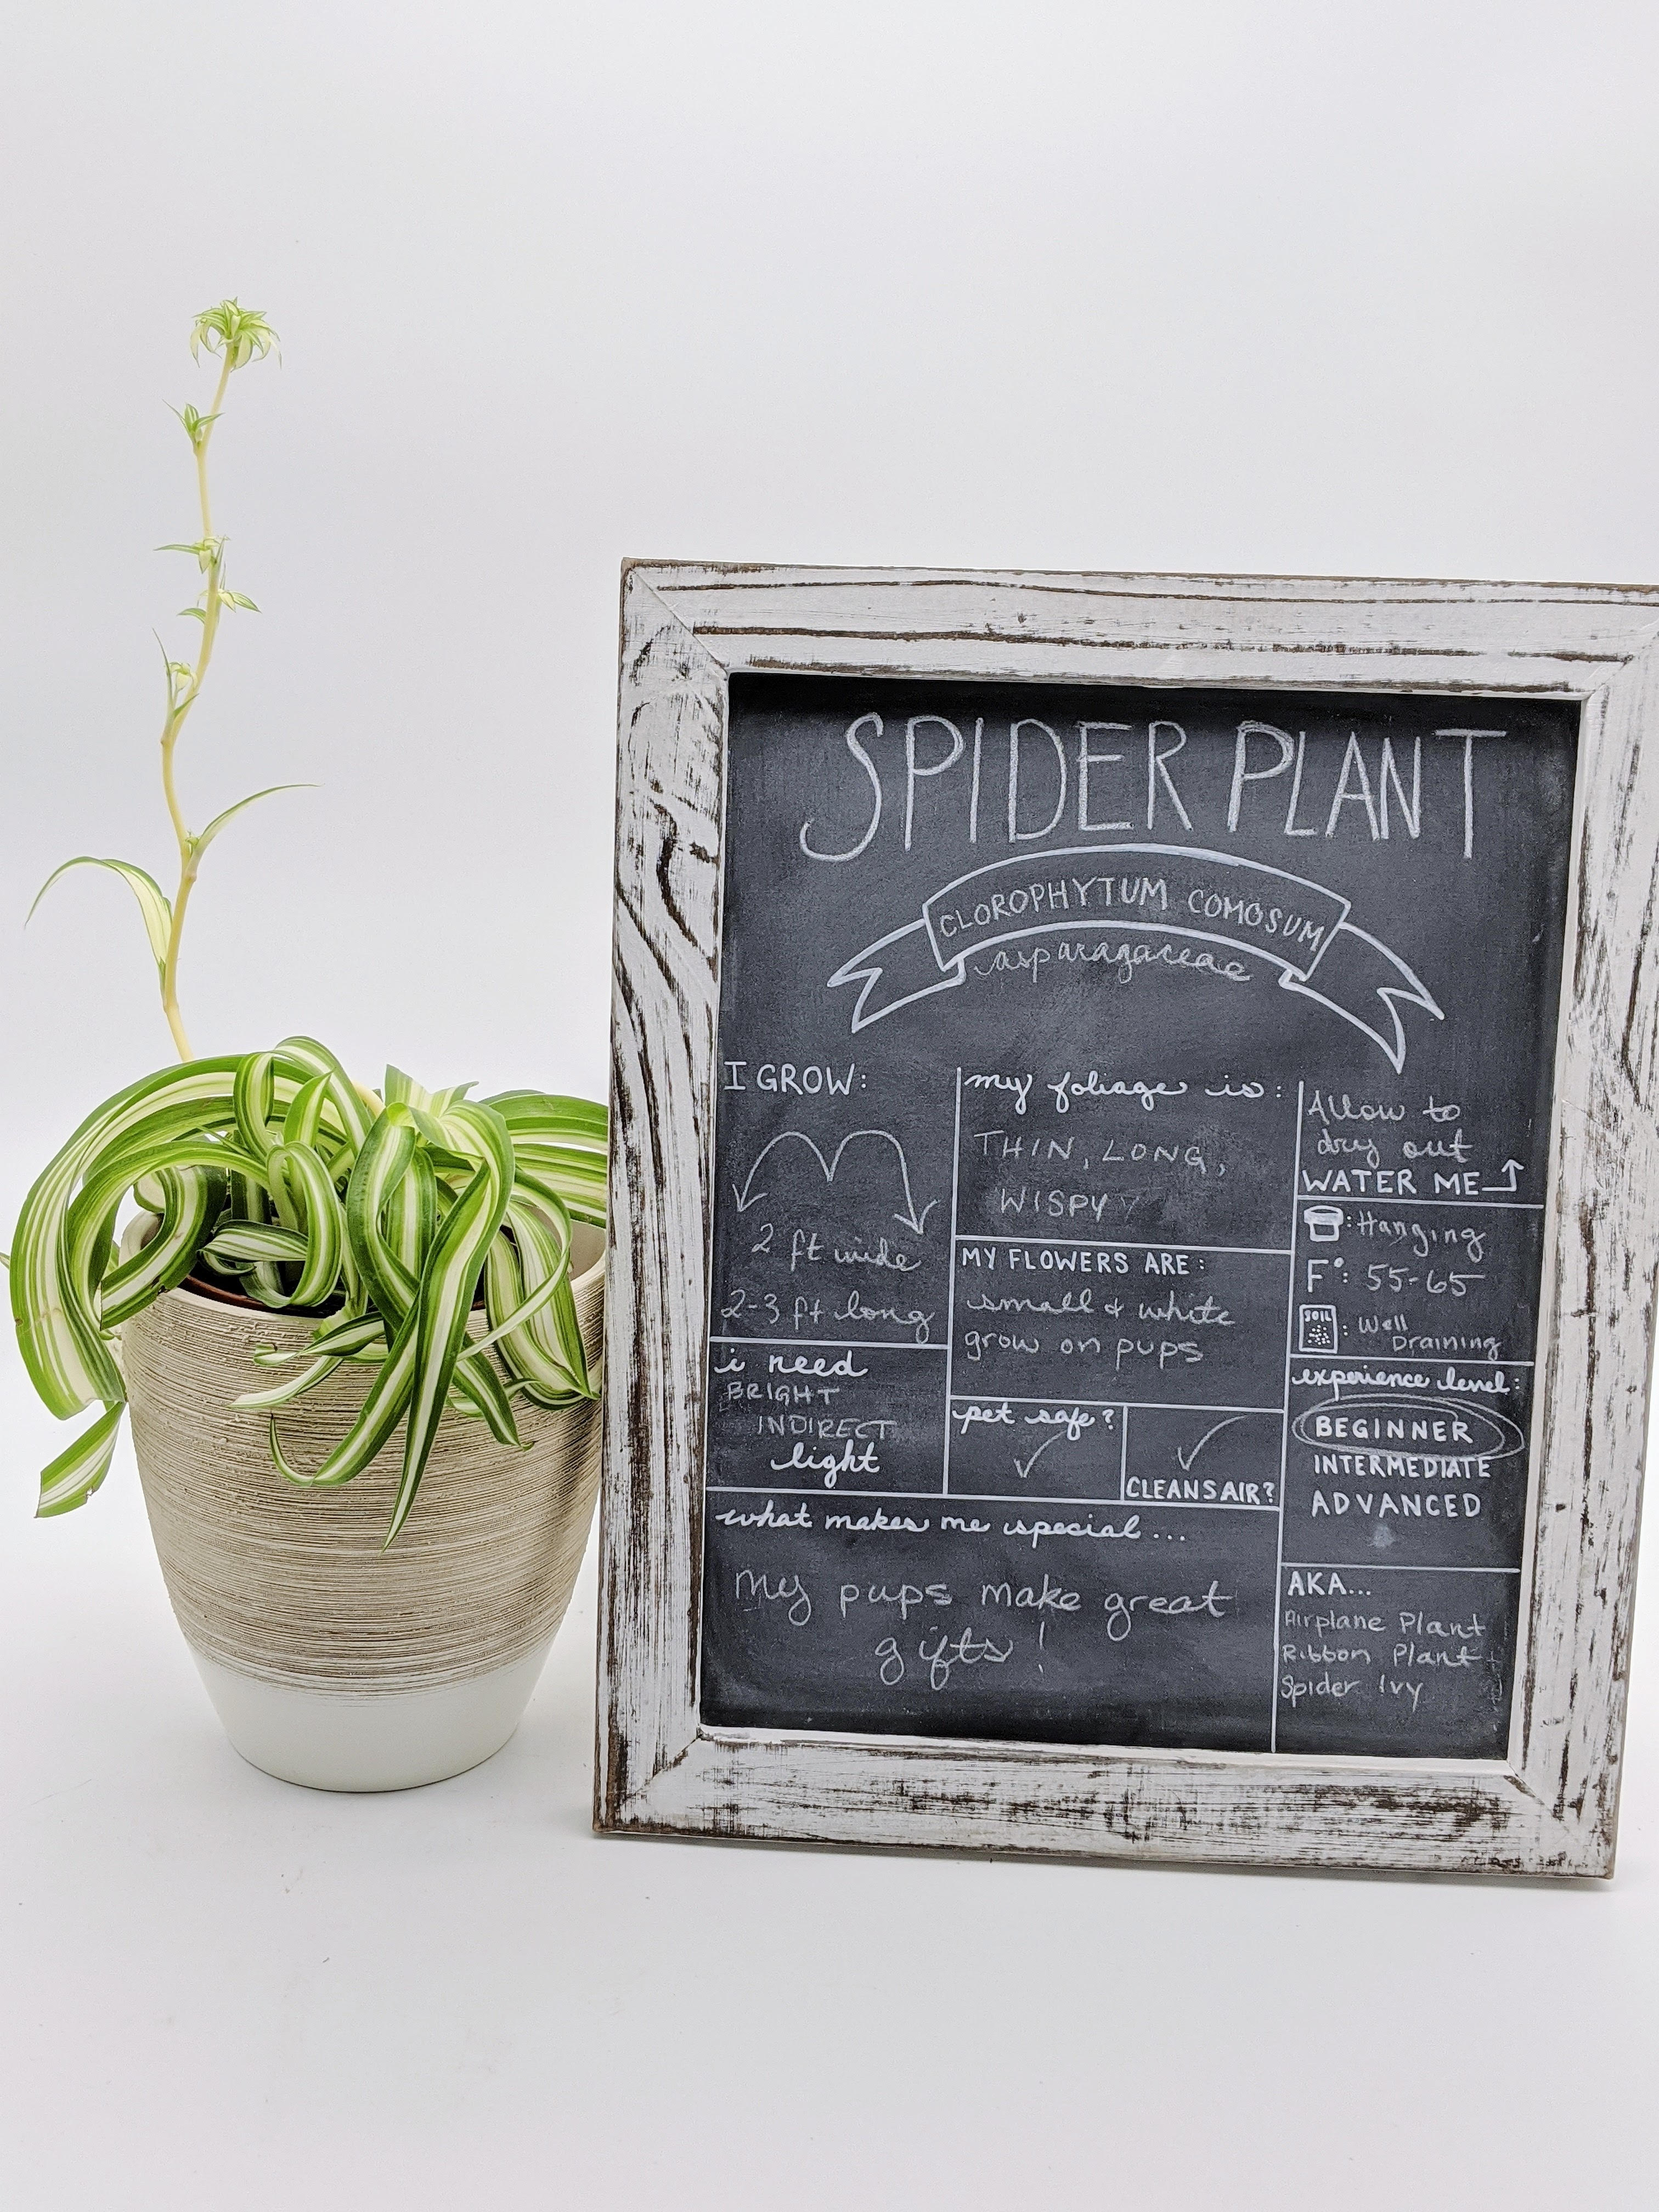 SPIDER PLANT
CLOROPHYTUM COMOSUM
asparagaceae
I GROW:
2 ft wide
2-3 ft long
i need
BRIGHT
INDIRECT
light
my foliage is:
THIN, LONG,
WISPY
MY FLOWERS ARE:
small & white
grow on pups
pet safe?
CLEANS AIR?
what makes me special...
My pups make great
gifts!
Allow to
dry out
WATER ME
: Hanging
F°: 55-65
SOIL : Well
Draining
experience level:
BEGINNER
INTERMEDIATE
ADVANCED
AKA...
Airplane Plant
Ribbon Plant
Spider Ivy